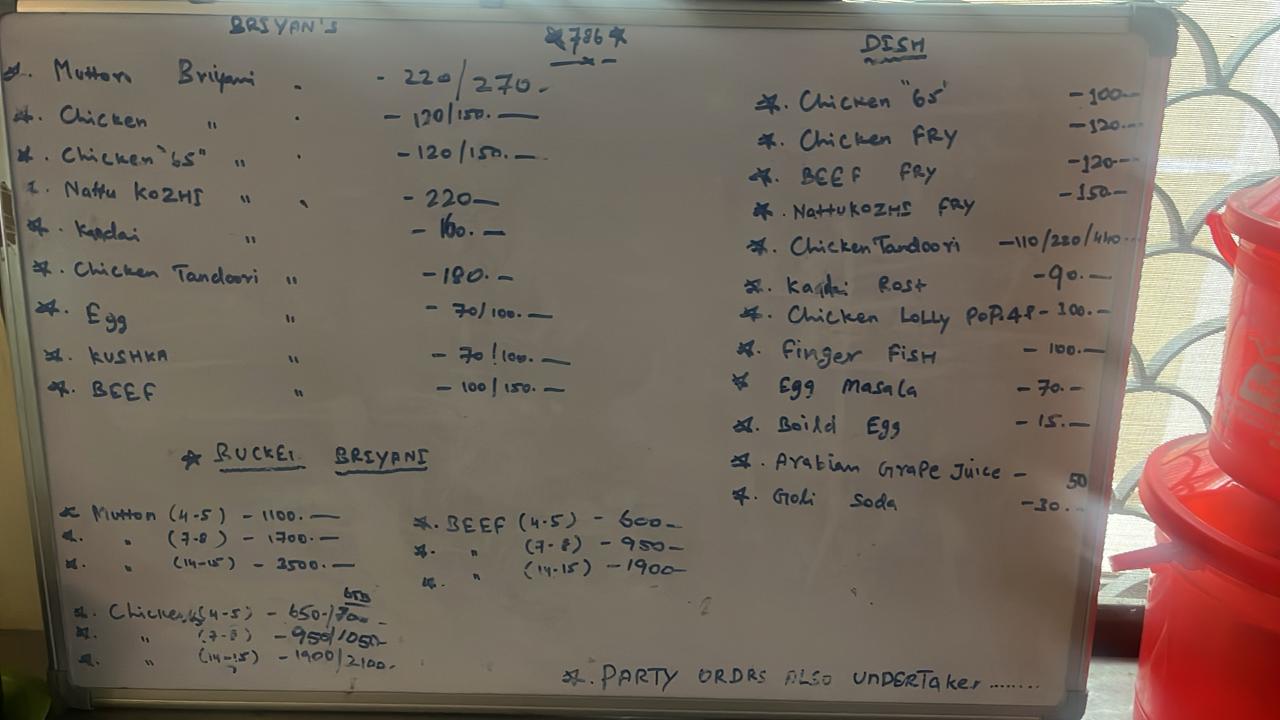 BRIYAN'S
*786*
*. Mutton Briyani . - 220/270.
*. Chicken " . - 120/150.
*. Chicken "65" " . - 120/150.
*. Nattu KOZHI " . - 220
*. Kadai " - 160.
*. Chicken Tandoori " - 180.
*. Egg " - 70/100.
*. KUSHKA " - 70/100.
*. BEEF " - 100/150.
* BUCKET BRIYANI
* Mutton (4-5) - 1100.
*. " (7-8) - 1700.
*. " (14-15) - 3500.
*. BEEF (4.5) - 600
*. " (7-8) - 950
*. " (14.15) - 1900
*. Chicken (4-5) - 650/
*. " (7-8) - 950/1050
*. " (14-15) - 1900/2100.
DISH
*. Chicken "65" - 100
*. Chicken FRY - 120
*. BEEF FRY - 120
*. NattuKOZHI FRY - 150
*. Chicken Tandoori - 110/220/440
*. Kadai Rost - 90.
*. Chicken LOLLY POP:4P - 100.
*. Finger FISH - 100.
* Egg Masala - 70.
*. Boild Egg - 15.
*. Arabian Grape Juice - 50
*. Goli Soda - 30.
*. PARTY ORDRS ALSO UNDERTaker........